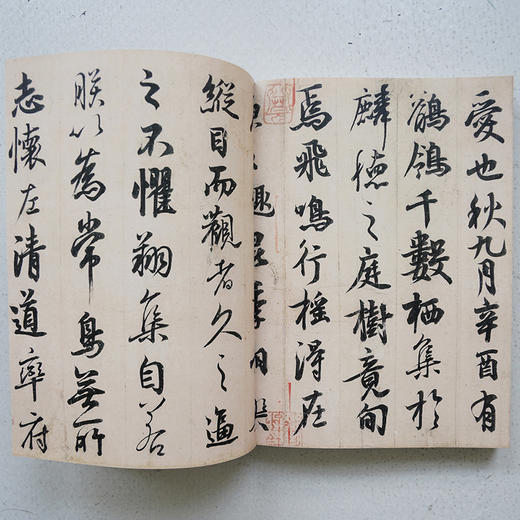 愛也秋九月辛酉有
鶺鴒千數栖集於
麟德之庭樹竟旬
焉飛鳴行搖得在
趣昆季
縱目而觀者久之逼
之不懼翔集自若
朕以為常鳥無所
志懷左清道率府